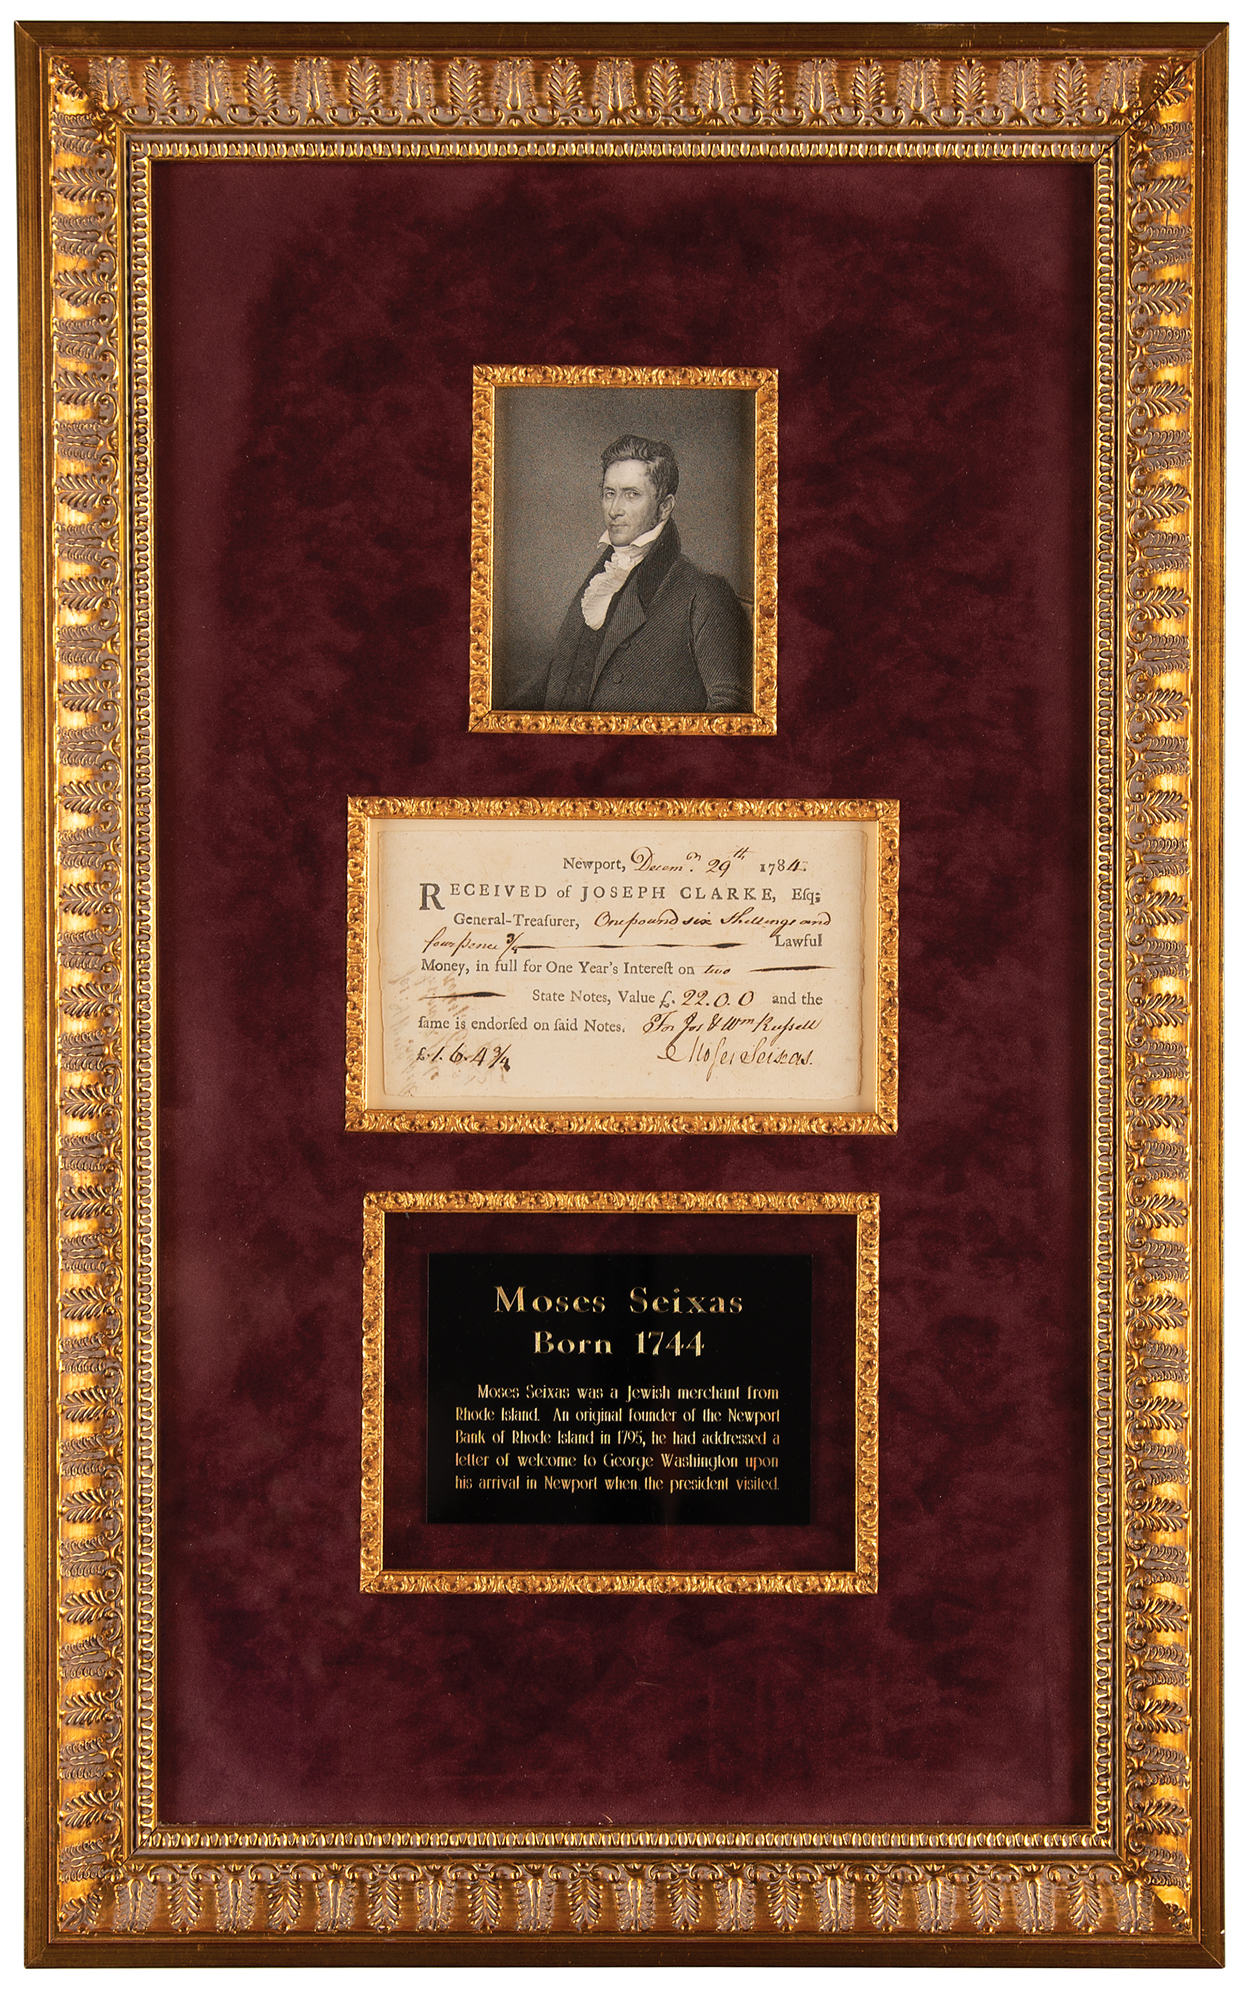 Newport, Decemr. 29th 1784.
RECEIVED of JOSEPH CLARKE, Esq;
General-Treaſurer, One pound six Shillings and
four pence 3/4 Lawful
Money, in full for One Year's Intereſt on two
State Notes, Value £. 22.0.0 and the
ſame is endorſed on ſaid Notes. For Jos & Wm Ruſsell
£.1.6.4 3/4 Moſes Seixas.
Moses Seixas
Born 1744
Moses Seixas was a Jewish merchant from
Rhode Island. An original founder of the Newport
Bank of Rhode Island in 1795, he had addressed a
letter of welcome to George Washington upon
his arrival in Newport when the president visited.